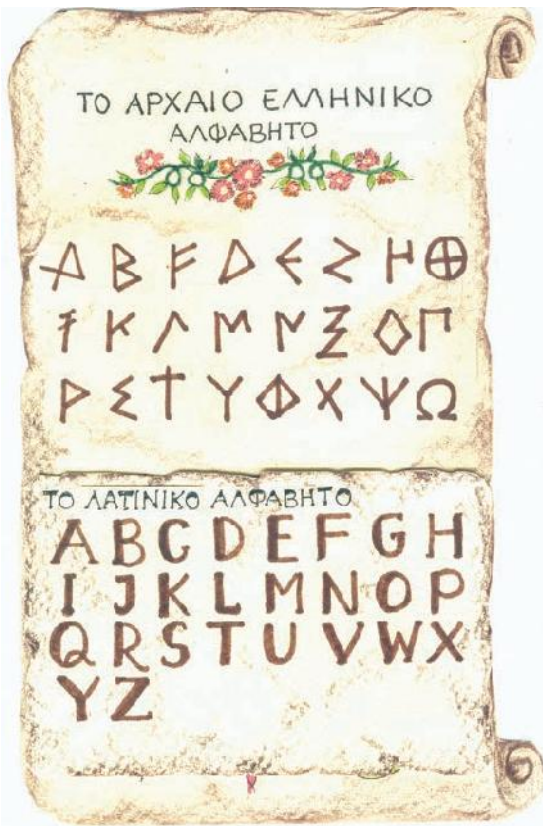 ΤΟ ΑΡΧΑΙΟ ΕΛΛΗΝΙΚΟ
ΑΛΦΑΒΗΤΟ
Α Β Ϝ Δ Ε Σ Η Θ
Ϯ Κ Λ Μ Ν Ξ Ο Π
Ρ Σ Τ Υ Φ Χ Ψ Ω
ΤΟ ΛΑΤΙΝΙΚΟ ΑΛΦΑΒΗΤΟ
A B C D E F G H
I J K L M N O P
Q R S T U V W X
Y Z